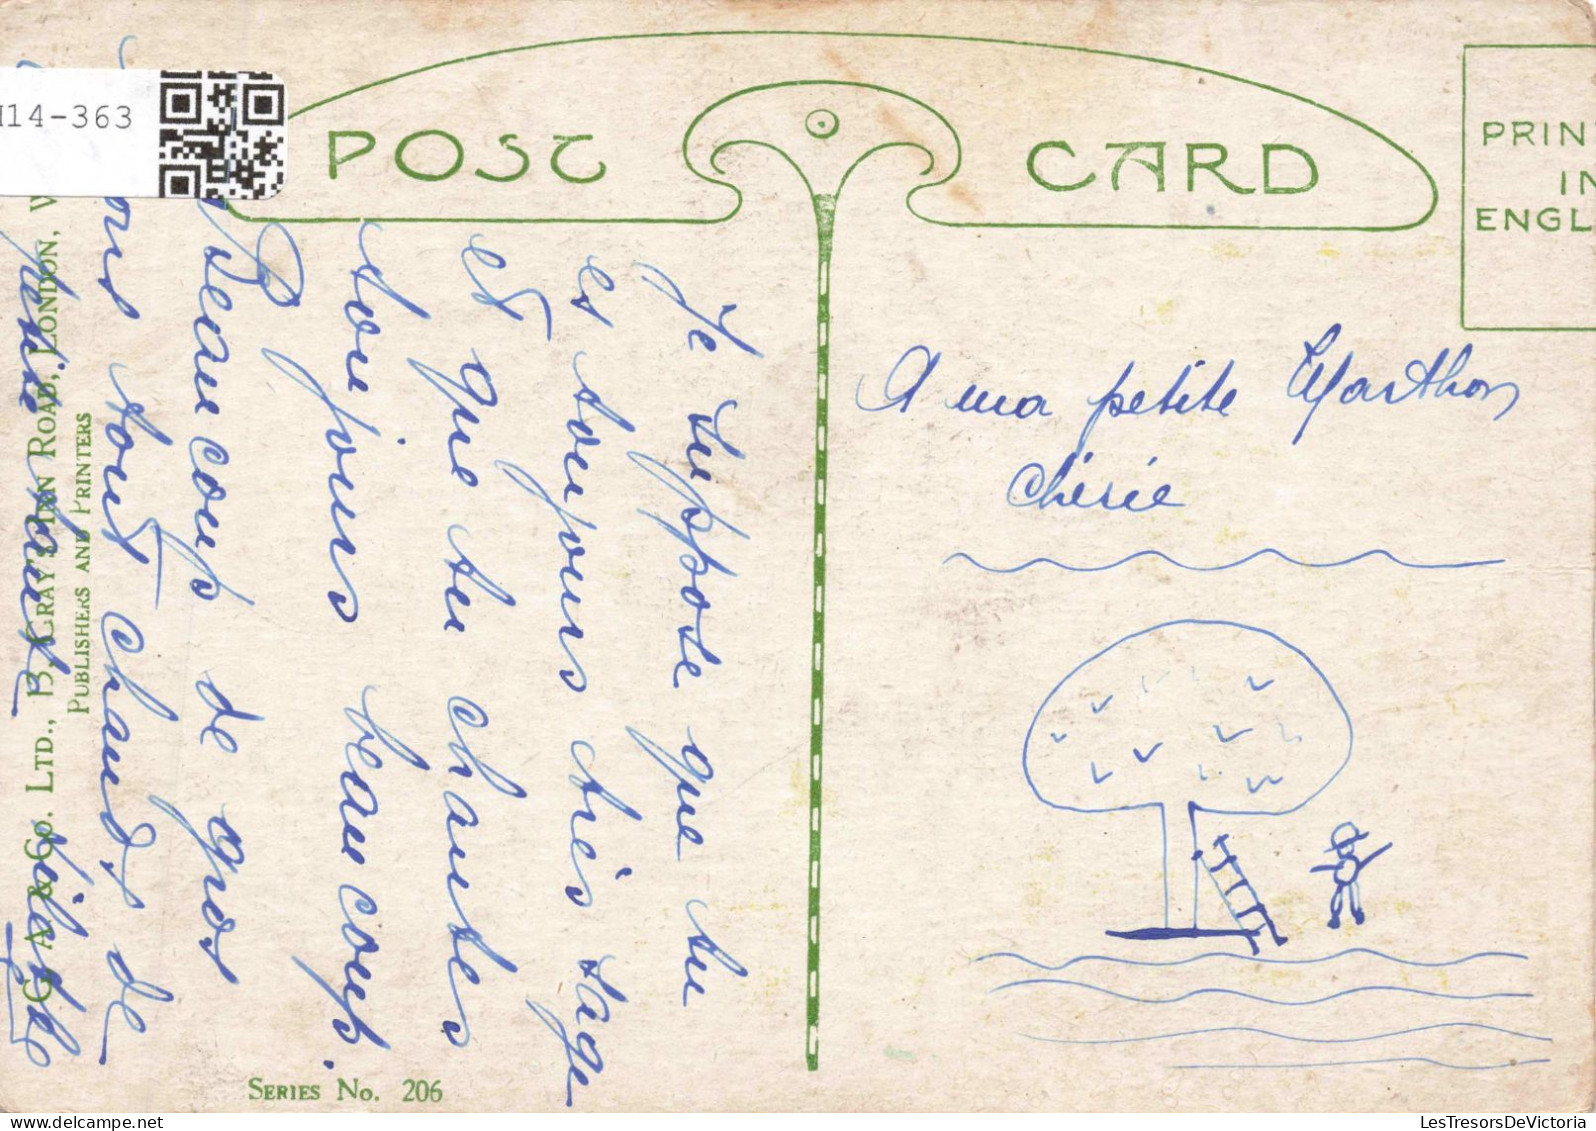 114-363
POST CARD
PRIN
IN
ENGL
A ma petite Marthon
chérie
Je suppose que tu
es toujours très sage
et que tu chantes
toujours beaucoup.
Beaucoup de gros
tout chauds de
petite
C. A. & Co. LTD., 13, GRAY'S INN ROAD, LONDON, W
PUBLISHERS AND PRINTERS
SERIES No. 206
delcampe.net
LesTresorsDeVictoria